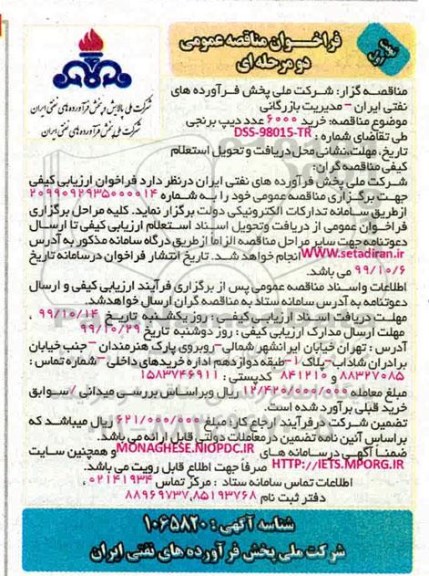 فراخوان مناقصه عمومی
دو مرحله ای
شرکت ملی پالایش و پخش فرآورده های نفتی ایران
شرکت ملی پخش فرآورده های نفتی ایران
مناقصه گزار: شرکت ملی پخش فرآورده های
نفتی ایران – مدیریت بازرگانی
موضوع مناقصه: خرید ۶۰۰۰ عدد دیپ برنجی
طی تقاضای شماره : DSS-98015-TR
تاریخ، مهلت،نشانی،محل دریافت و تحویل استعلام
کیفی مناقصه گران:
شرکت ملی پخش فرآورده های نفتی ایران درنظر دارد فراخوان ارزیابی کیفی
جهت برگزاری مناقصه عمومی خود را به شماره ۲۰۹۹۰۹۲۹۳۵۰۰۰۰۱۴
ازطریق سامانه تدارکات الکترونیکی دولت برگزار نماید. کلیه مراحل برگزاری
فراخوان عمومی از دریافت وتحویل اسناد استعلام ارزیابی کیفی تا ارسال
دعوتنامه جهت سایر مراحل مناقصه الزاماً ازطریق درگاه سامانه مذکور به آدرس
WWW.setadiran.ir انجام خواهد شد. تاریخ انتشار فراخوان درسامانه تاریخ
۹۹/۱۰/۶ می باشد.
اطلاعات واسناد مناقصه عمومی پس از برگزاری فرآیند ارزیابی کیفی و ارسال
دعوتنامه به آدرس سامانه ستاد به مناقصه گران ارسال خواهدشد.
مهلت دریافت اسناد ارزیابی کیفی: روز یکشنبه تاریخ ۹۹/۱۰/۱۴
مهلت ارسال مدارک ارزیابی کیفی : روز دوشنبه تاریخ ۹۹/۱۰/۲۹
آدرس : تهران خیابان ایرانشهر شمالی–روبروی پارک هنرمندان – جنب خیابان
برادران شاداب–پلاک ۱–طبقه دوازدهم اداره خریدهای داخلی –شماره تماس :
۸۸۳۲۷۰۸۵ و ۸۴۱۲۱۰ کدپستی : ۱۵۸۳۷۴۶۹۱۱
مبلغ معامله ۱۲/۴۲۰/۰۰۰/۰۰۰ ریال وبراساس بررسی میدانی /سوابق
خرید قبلی برآورد شده است.
تضمین شرکت در فرآیند ارجاع کار مبلغ ۶۲۱/۰۰۰/۰۰۰ ریال میباشد که
بر اساس آئین نامه تضمین درمعاملات دولتی قابل ارائه می باشد.
ضمناً آگهی درسامانه های MONAGHESE.NIOPDC.IR و همچنین سایت
HTTP://IETS.MPORG.IR صرفا جهت اطلاع قابل رویت می باشد.
اطلاعات تماس سامانه ستاد : مرکز تماس ۰۲۱۴۱۹۳۴
دفتر ثبت نام ۸۸۹۶۹۷۳۷،۸۵۱۹۳۷۶۸
شناسه آگهی : ۱۰۶۵۸۲۰
شرکت ملی پخش فرآورده های نفتی ایران